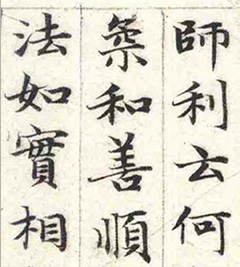 師利云何
柔和善順
法如實相